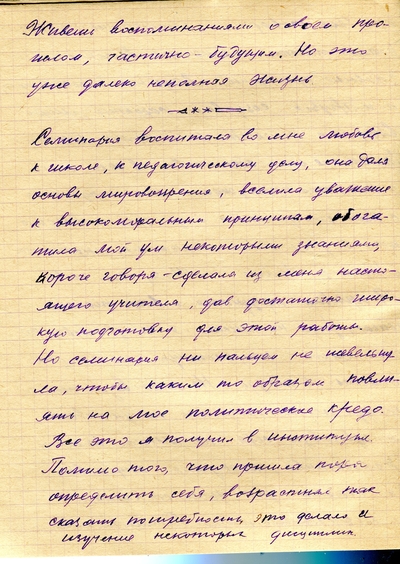 Живеш воспоминаниями о своем про-
шлом, частично - будущим. Но это
уже далеко неполная жизнь.
Семинария воспитала во мне любовь
к школе, к педагогическому делу, она дала
основы мировоззрения, вселила уважение
к высокоморальным принципам, обога-
тила мой ум некоторыми знаниями,
короче говоря - сделала из меня насто-
ящего учителя, дав достаточно широ-
кую подготовку для этой работы.
Но семинария ни пальцем не шевельну-
ла, чтобы каким то образом повли-
ять на мое политическое кредо.
Все это я получил в институте.
Помимо того, что пришла пора
определить себя, возрастная так
сказать потребность, это делало и
изучение некоторых дисциплин.